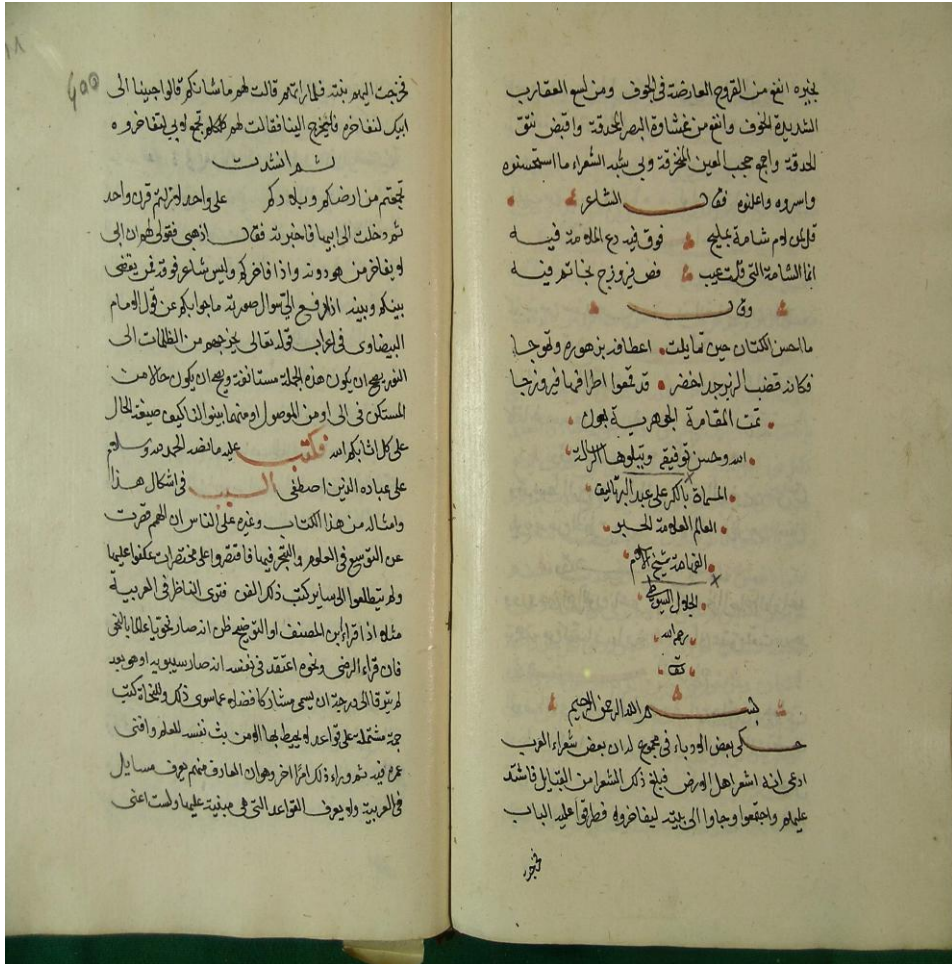 بخيره انفع من القروح العارضة في الجوف ومن لسع العقارب
الشديدة الخوف وانفع من غشاوة البصر المحدقة واقبض نتق
الحدقة واجمع حجب العين المنخرقة ولي يشبه الشعراء ما استحسنوه
واسروه واعلنوه فقال الشاعر
قل لمن لام شامة بمليح فوق فيه دع الملامة فيه
انما الشامة التي قلت عيب فص فيروزج بخاتم فيه
وقال
ما احسن الكتان حين تمايلت اعطافه بزهوره وتموجا
فكانه قضب الزبرجد اخضر قد قمعوا اطرافها فيروزجا
تمت المقامة الجوهرية بعون
الله وحسن توفيقه ويتلوها الرسالة
المسماة بالكر على عبد البر تاليف
العالم العلامة الحبر
الفهامة شيخ الاسلام
الجلال السيوطي
رحمه الله
تعالى
بسم الله الرحمن الرحيم
حكى بعض الادباء في مجموع له ان بعض شعراء العرب
ادعى انه اشعر اهل الارض فبلغ ذلك الشعرا من القبايل فاشتد
عليهم واجتمعوا وجاوا الى بيته ليفاخروه فطرقوا عليه الباب
فخرجت
٤٥٥
فخرجت اليهم بنته فلما راتهم قالت لهم ما شانكم قالوا جينا الى
ابيك لنفاخره فليخرج الينا فقالت لهم كلكم تجمع لابي لتفاخروه
ثم انشدت
تجمعتم من ارضكم وبلادكم على واحد لا زلتم قرن واحد
ثم دخلت الى ابيها فاخبرته فقال اذهبي فقولي لهم ان ابي
لا يفاخر من هو دونه واذا فاخركم وليس شاعر فوقه فمن يقضي
بينكم وبينه اذا رفع الي سوال صورته ما جوابكم عن قول الامام
البيضاوي في اعراب قوله تعالى يخرجهم من الظلمات الى
النور يصح ان يكون هذه الجملة مستانفة ويصح ان يكون حالا من
المستكن في الى او من الموصول او منهما بينوا لنا كيف صيغة الحال
على كل اثابكم الله فكتب عليه ما نصه الحمد لله وسلام
على عباده الذين اصطفى السبب في اشكال هذا
وامثاله من هذا الكتاب وغيره على الناس ان الهمم قصرت
عن التوسع في العلوم والتبحر فيها فاقتصروا على مختصرات عكفوا عليها
ولم يتطلعوا الى ساير كتب ذلك الفن فترى الناظر في العربية
مثلا اذا قرا ابن المصنف او التوضيح ظن انه صار نحويا
فان قراء الرضي ونحوه اعتقد في نفسه انه صار سيبويه او هو بعد
لم يترق الى درجة ان يسمى مشاركا فضلا عما سوى ذلك وللنحاة كتب
جمة مشتملة على قواعد لا يحيط بها الا من بث نفسه للعلم وافنى
عمره فيه ثم وراء ذلك امرا اخر وهو ان العارف منهم يعرف مسايل
في العربية ولا يعرف القواعد التي هي مبنية عليها ولست اعني